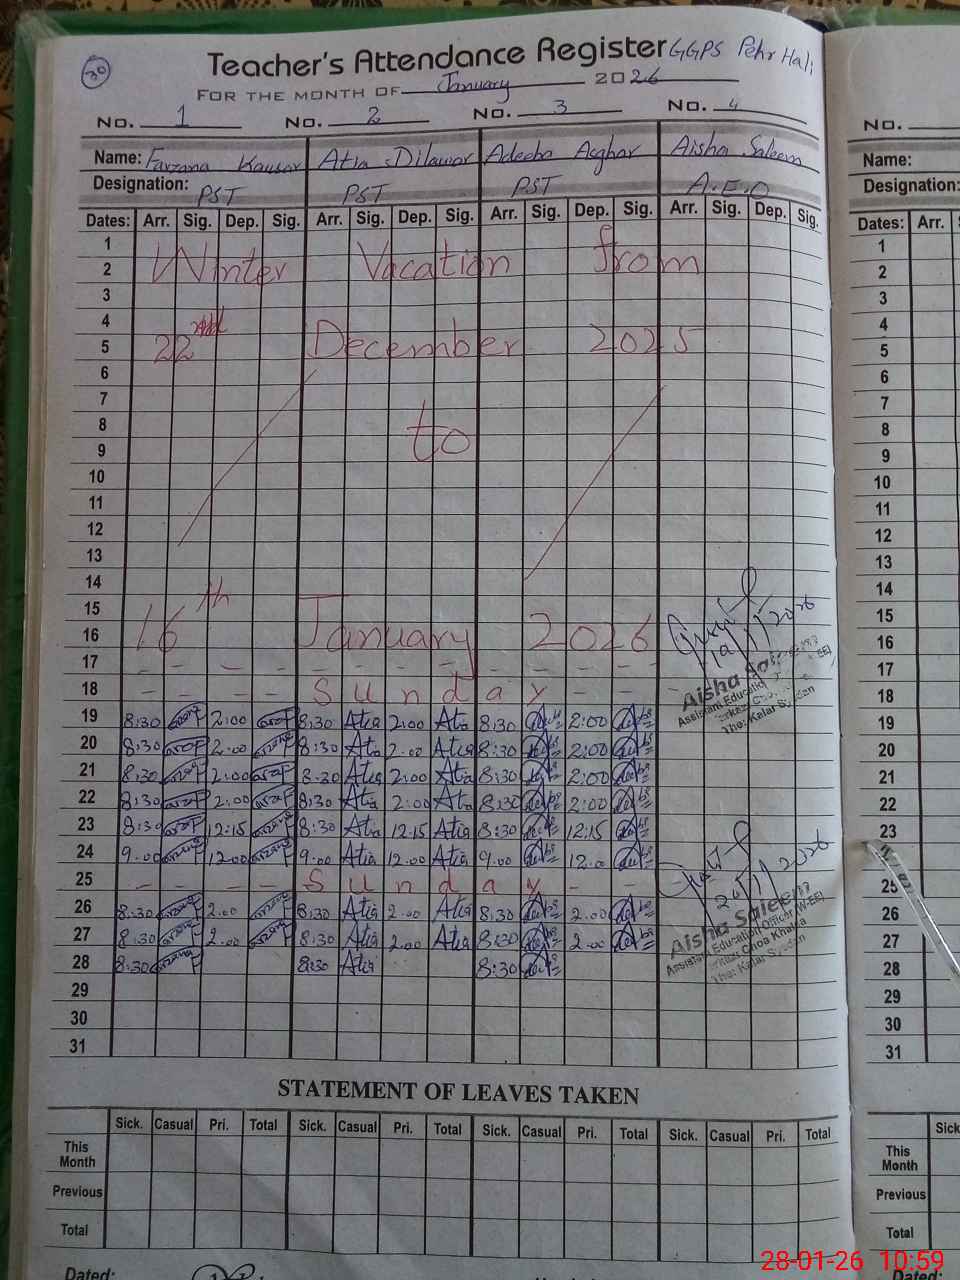 30
Teacher's Attendance Register GGPS Pehr Hali
FOR THE MONTH OF January 2026
No. 1 No. 2 No. 3 No. 4
Name: Farzana Kausar Atia Dilawar Adeeba Asghar Aisha Saleem
Designation: PST PST PST A.E.O
Dates: Arr. Sig. Dep. Sig. Arr. Sig. Dep. Sig. Arr. Sig. Dep. Sig. Arr. Sig. Dep. Sig.
1
2 Winter Vacation from
3
4
5 22nd December 2025
6
7
8
9 to
10
11
12
13
14
15
16 16th January 2026
19/1/2026
17 - - - - - - - - -
Aisha Saleem
18 - - - - Sunday - -
Assistant Education
The: Kalar Syedan
19 8:30 2:00 8:30 Atia 2:00 Atia 8:30 2:00
20 8:30 2:00 8:30 Atia 2:00 Atia 8:30 2:00
21 8:30 2:00 8:30 Atia 2:00 Atia 8:30 2:00
22 8:30 2:00 8:30 Atia 2:00 Atia 8:30 2:00
23 8:30 12:15 8:30 Atia 12.15 Atia 8:30 12:15
24 9.00 12.00 9.00 Atia 12.00 Atia 9.00 12.00
25 - - - - Sunday - -
26 8:30 2.00 8:30 Atia 2.00 Atia 8:30 2.00
27 8:30 2.00 8:30 Atia 2.00 Atia 8:30 2.00
Aisha Saleem
Assistant Education Officer (W-EE)
Markaz Choa Khalsa
The: Kalar Syedan
28 8:30 8:30 Atia 8:30
29
30
31
STATEMENT OF LEAVES TAKEN
Sick. Casual Pri. Total Sick. Casual Pri. Total Sick. Casual Pri. Total Sick. Casual Pri. Total
This Month
Previous
Total
Dated:
No.
Name:
Designation:
Dates: Arr.
1
2
3
4
5
6
7
8
9
10
11
12
13
14
15
16
17
18
19
20
21
22
23
25
26
27
28
29
30
31
Sick
This Month
Previous
Total
Dated:
28-01-26 10:59